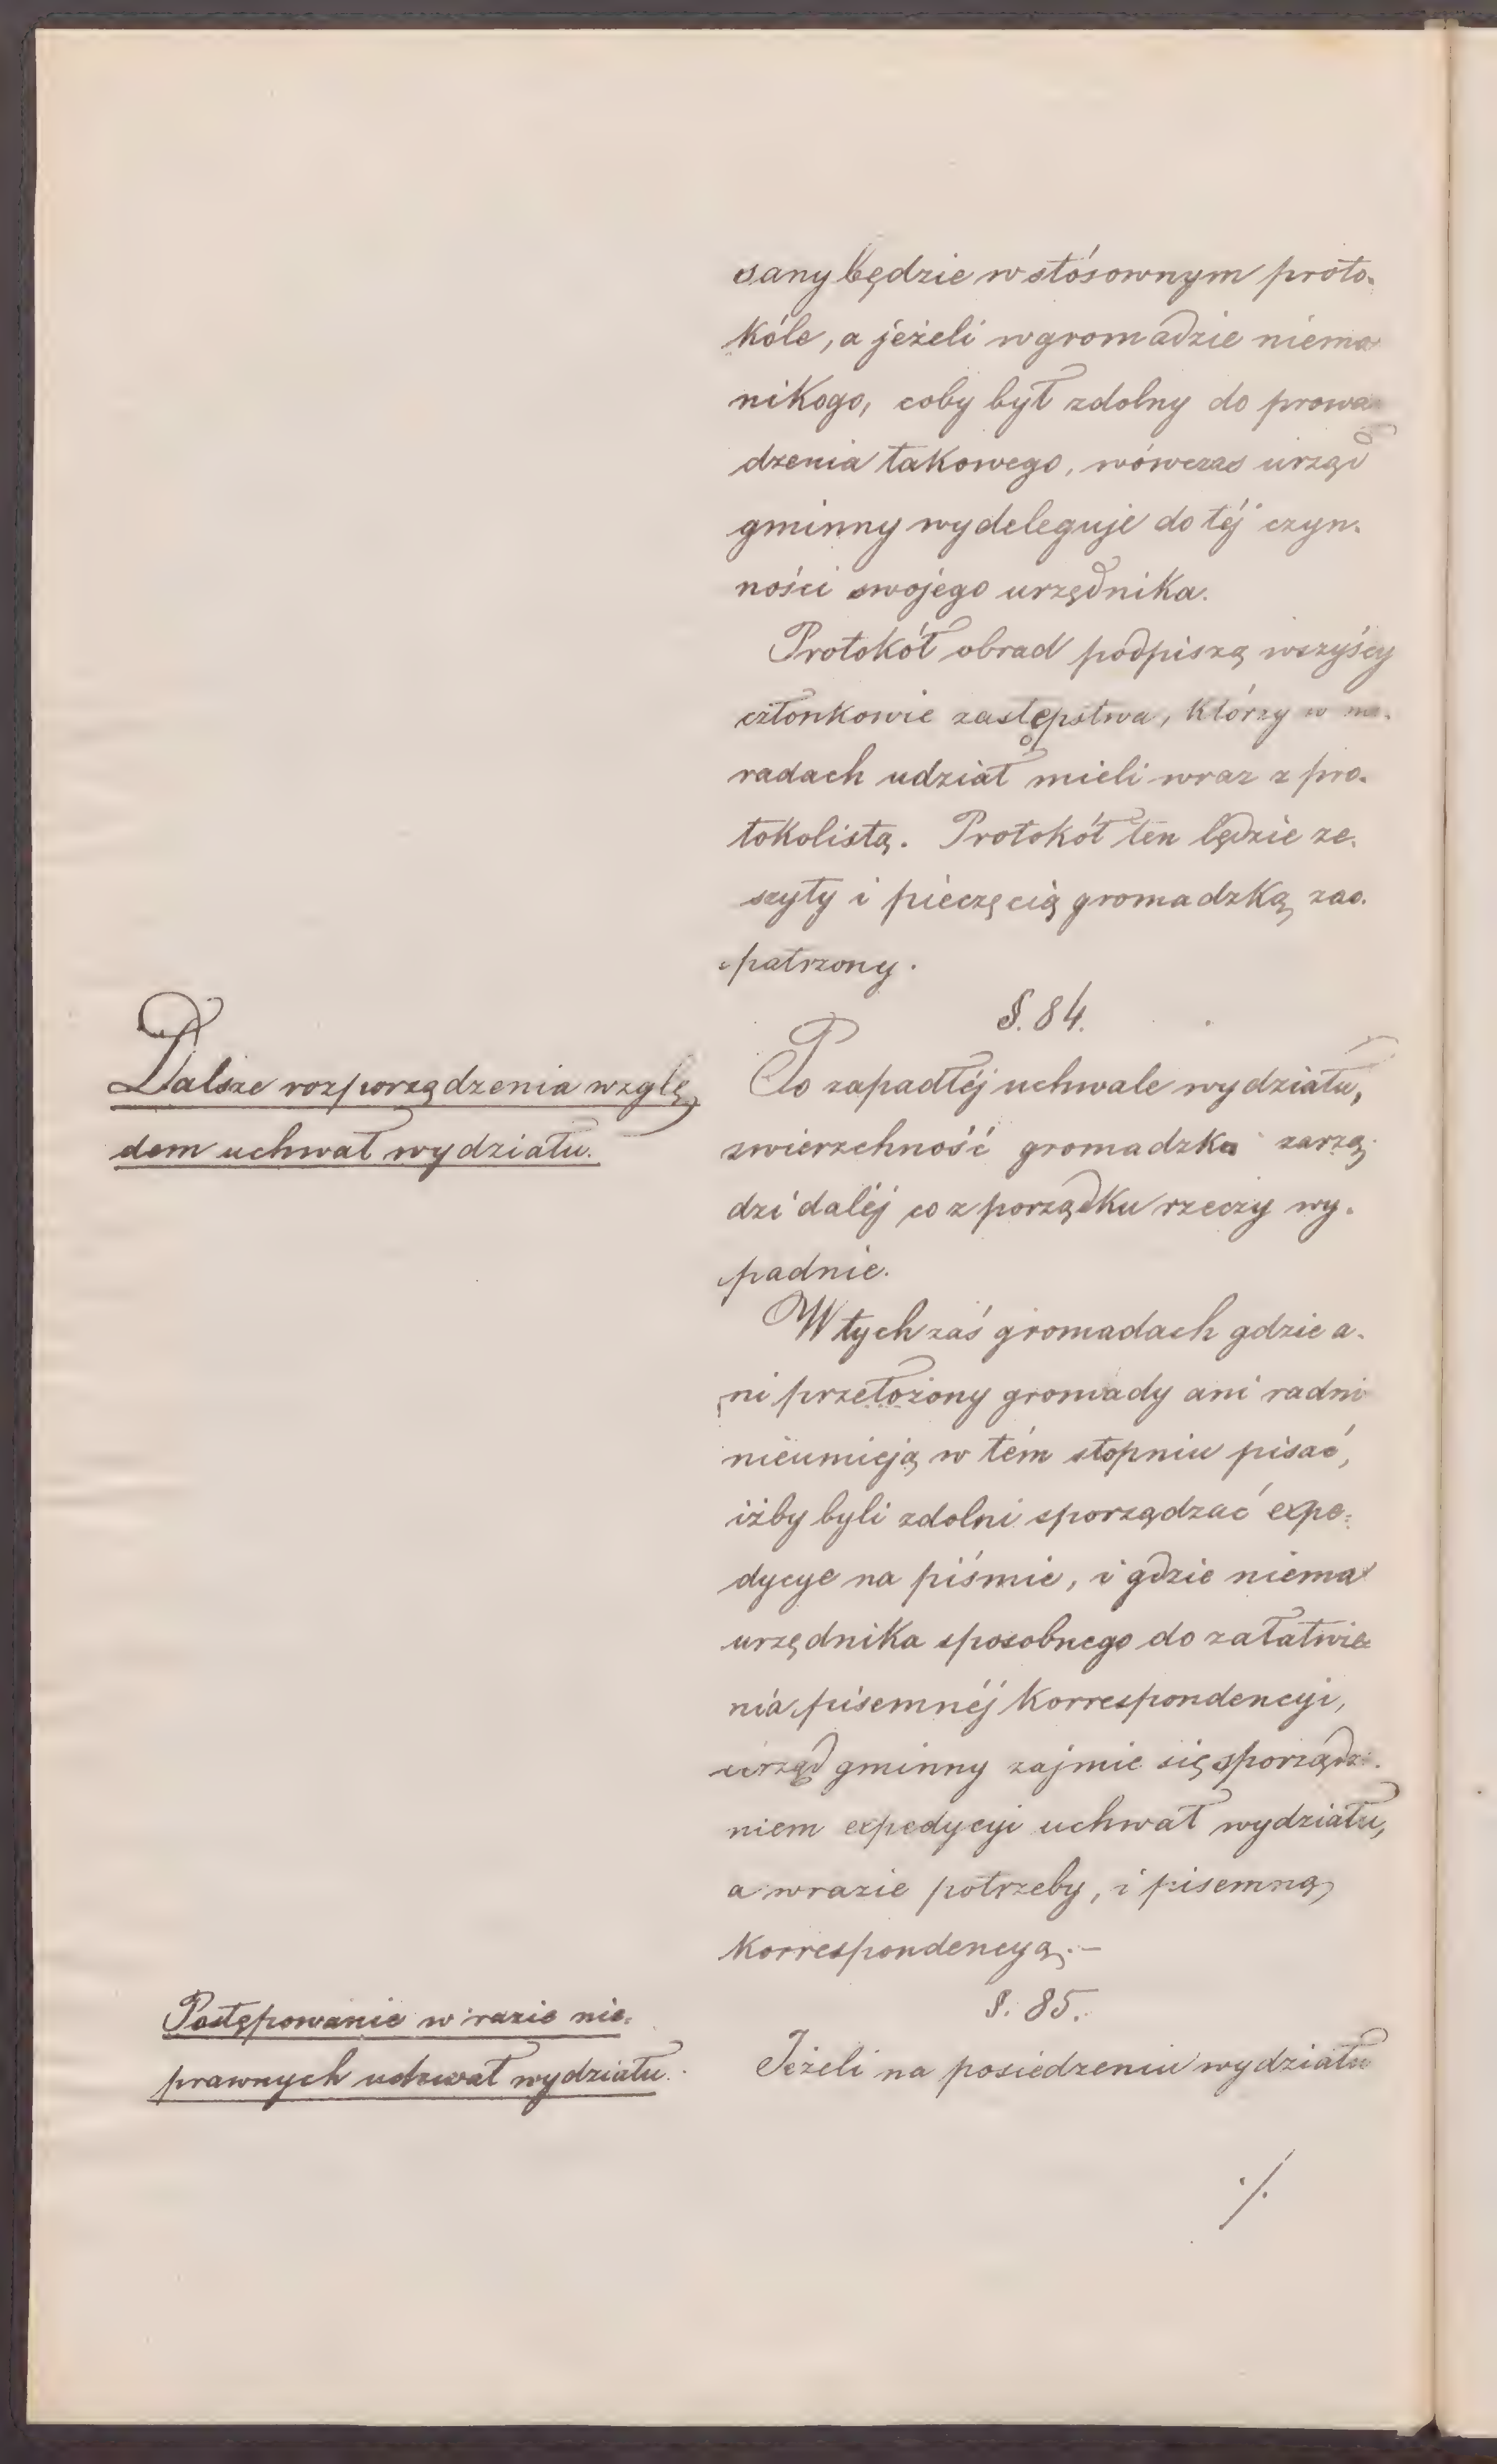 sany będzie w stósownym proto-
kóle, a jeżeli w gromadzie niema
nikogo, coby był zdolny do prowa-
dzenia takowego, wówczas urząd
gminny wydeleguje do téj czyn-
ności swojego urzędnika.
Protokół obrad podpiszą wszyścy
członkowie zastępstwa, którzy w na-
radach udział mieli wraz z pro-
tokolistą. Protokół ten będzie ze-
szyty i pieczęcią gromadzką zao-
patrzony.
§. 84.
Dalsze rozporządzenia wzglę
dem uchwał wydziału.
Po zapadłéj uchwale wydziału,
zwierzchność gromadzka zarzą-
dzi daléj co z porządku rzeczy wy-
padnie.
W tych zaś gromadach gdzie a-
ni przełożony gromady ani radni
nieumieją w tém stopniu pisać,
iżby byli zdolni sporządzać expe-
dycye na piśmie, i gdzie niema
urzędnika sposobnego do załatwie-
nia pisemnéj korrespondencyi,
urząd gminny zajmie się sporządze-
niem expedycyi uchwał wydziału,
a w razie potrzeby, i pisemną
korrespondencyą.-
§. 85.
Postępowanie w razie nie-
prawnych uchwał wydziału.
Jeżeli na posiedzeniu wydziału
./.